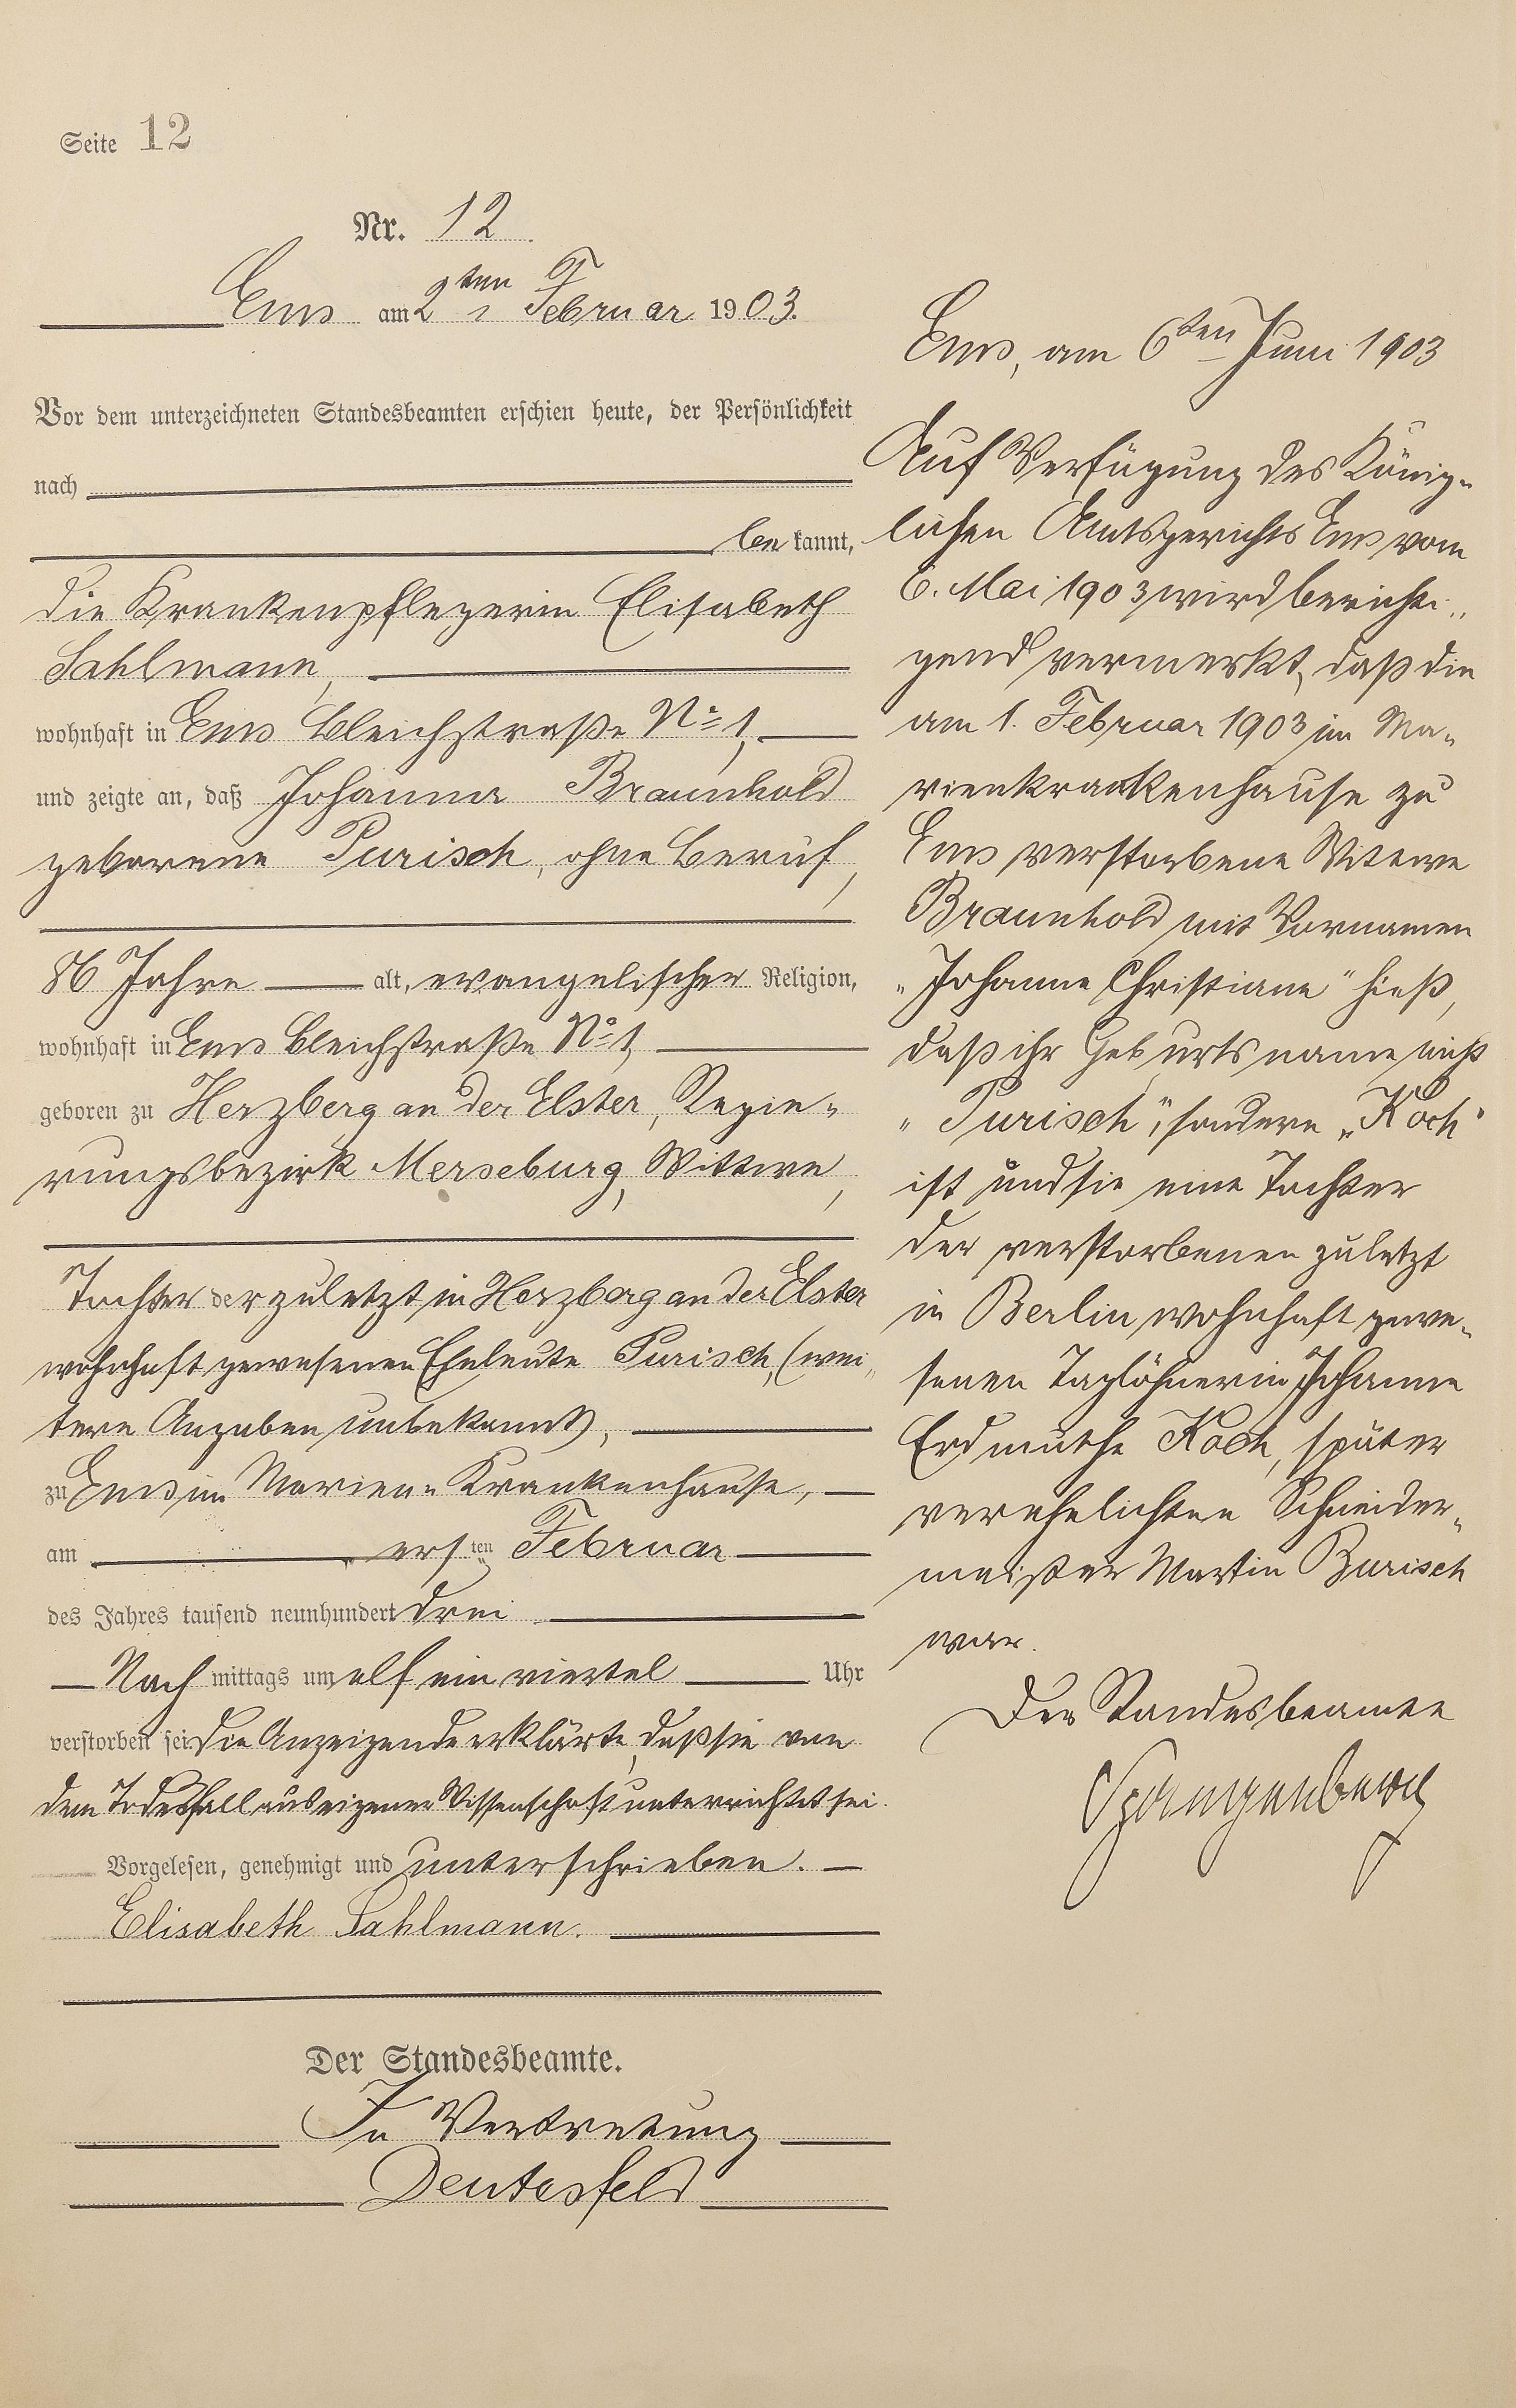 Seite 12
Nr. 12
Ems am 2ten Februar 1903.
Vor dem unterzeichneten Standesbeamten erschien heute, der Persönlichkeit
nach
bekannt,
die Krankenpflegerin Elisabeth
Sahlmann,
wohnhaft in Ems Bleichstraße No 1,
und zeigte an, daß Johanna Braunhold
geborene Purisch, ohne Beruf,
86 Jahre alt, evangelischer Religion,
wohnhaft in Ems Bleichstraße No 1,
geboren zu Herzberg an der Elster, Regie-
rungsbezirk Merseburg, Wittwe,
Tochter der zuletzt in Herzberg an der Elster
wohnhaft gewesenen Eheleute Purisch, (wei-
tere Angaben unbekannt),
zu Ems im Marien-Krankenhause,
am ersten Februar
des Jahres tausend neunhundert drei
Nachmittags um elf ein viertel Uhr
verstorben sei. Die Anzeigende erklärte, daß sie von
dem Todesfall aus eigener Wissenschaft unterrichtet sei.
Vorgelesen, genehmigt und unterschrieben.
Elisabeth Sahlmann.
Der Standesbeamte.
In Vertretung
Deutesfeld
Ems, am 6ten Juni 1903
Auf Verfügung des König-
lichen Amtsgerichts Ems vom
6. Mai 1903 wird berichti-
gend vermerkt, daß die
am 1. Februar 1903 im Ma-
rienkrankenhause zu
Ems verstorbene Witwe
Braunhold mit Vornamen
"Johanne Christiane" hieß,
daß ihr Geburtsname nicht
"Purisch", sondern "Koch"
ist und sie eine Tochter
der verstorbenen zuletzt
in Berlin wohnhaft gewe-
senen Taglöhnerin Johanne
Erdmuthe Koch, später
verehelichten Schneider-
meister Martin Burisch
war.
Der Standesbeamte
Spangenberg